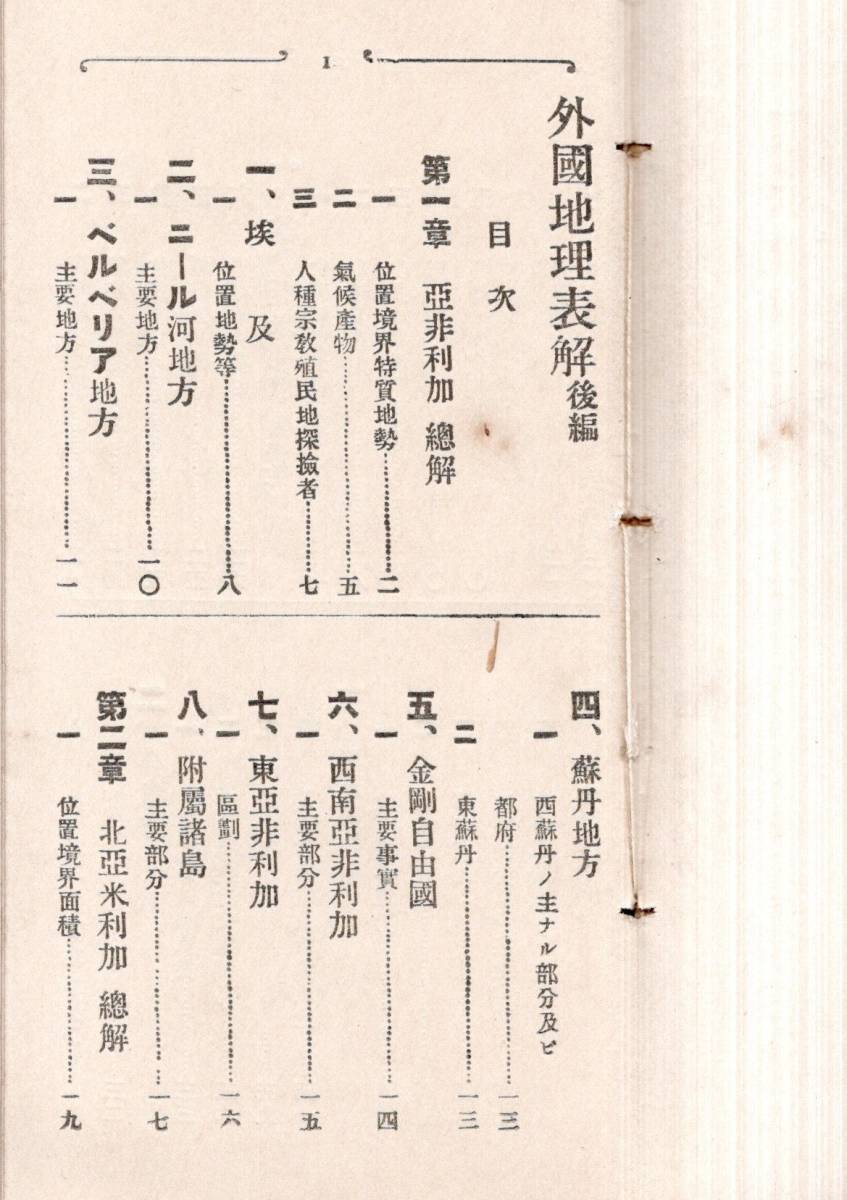 1
外國地理表解後編
目次
第一章 亞非利加 總解
一 位置境界特質地勢……二
二 氣候產物……五
三 人種宗教殖民地探撿者……七
一、埃及
一 位置地勢等……八
二、ニール河地方
一 主要地方……一〇
三、ベルベリア地方
一 主要地方……一一
四、蘇丹地方
一 西蘇丹ノ主ナル部分及ビ
都府……一三
二 東蘇丹……一三
五、金剛自由國
一 主要事實……一四
六、西南亞非利加
一 主要部分……一五
七、東亞非利加
一 區劃……一六
八、附屬諸島
一 主要部分……一七
第二章 北亞米利加 總解
一 位置境界面積……一九